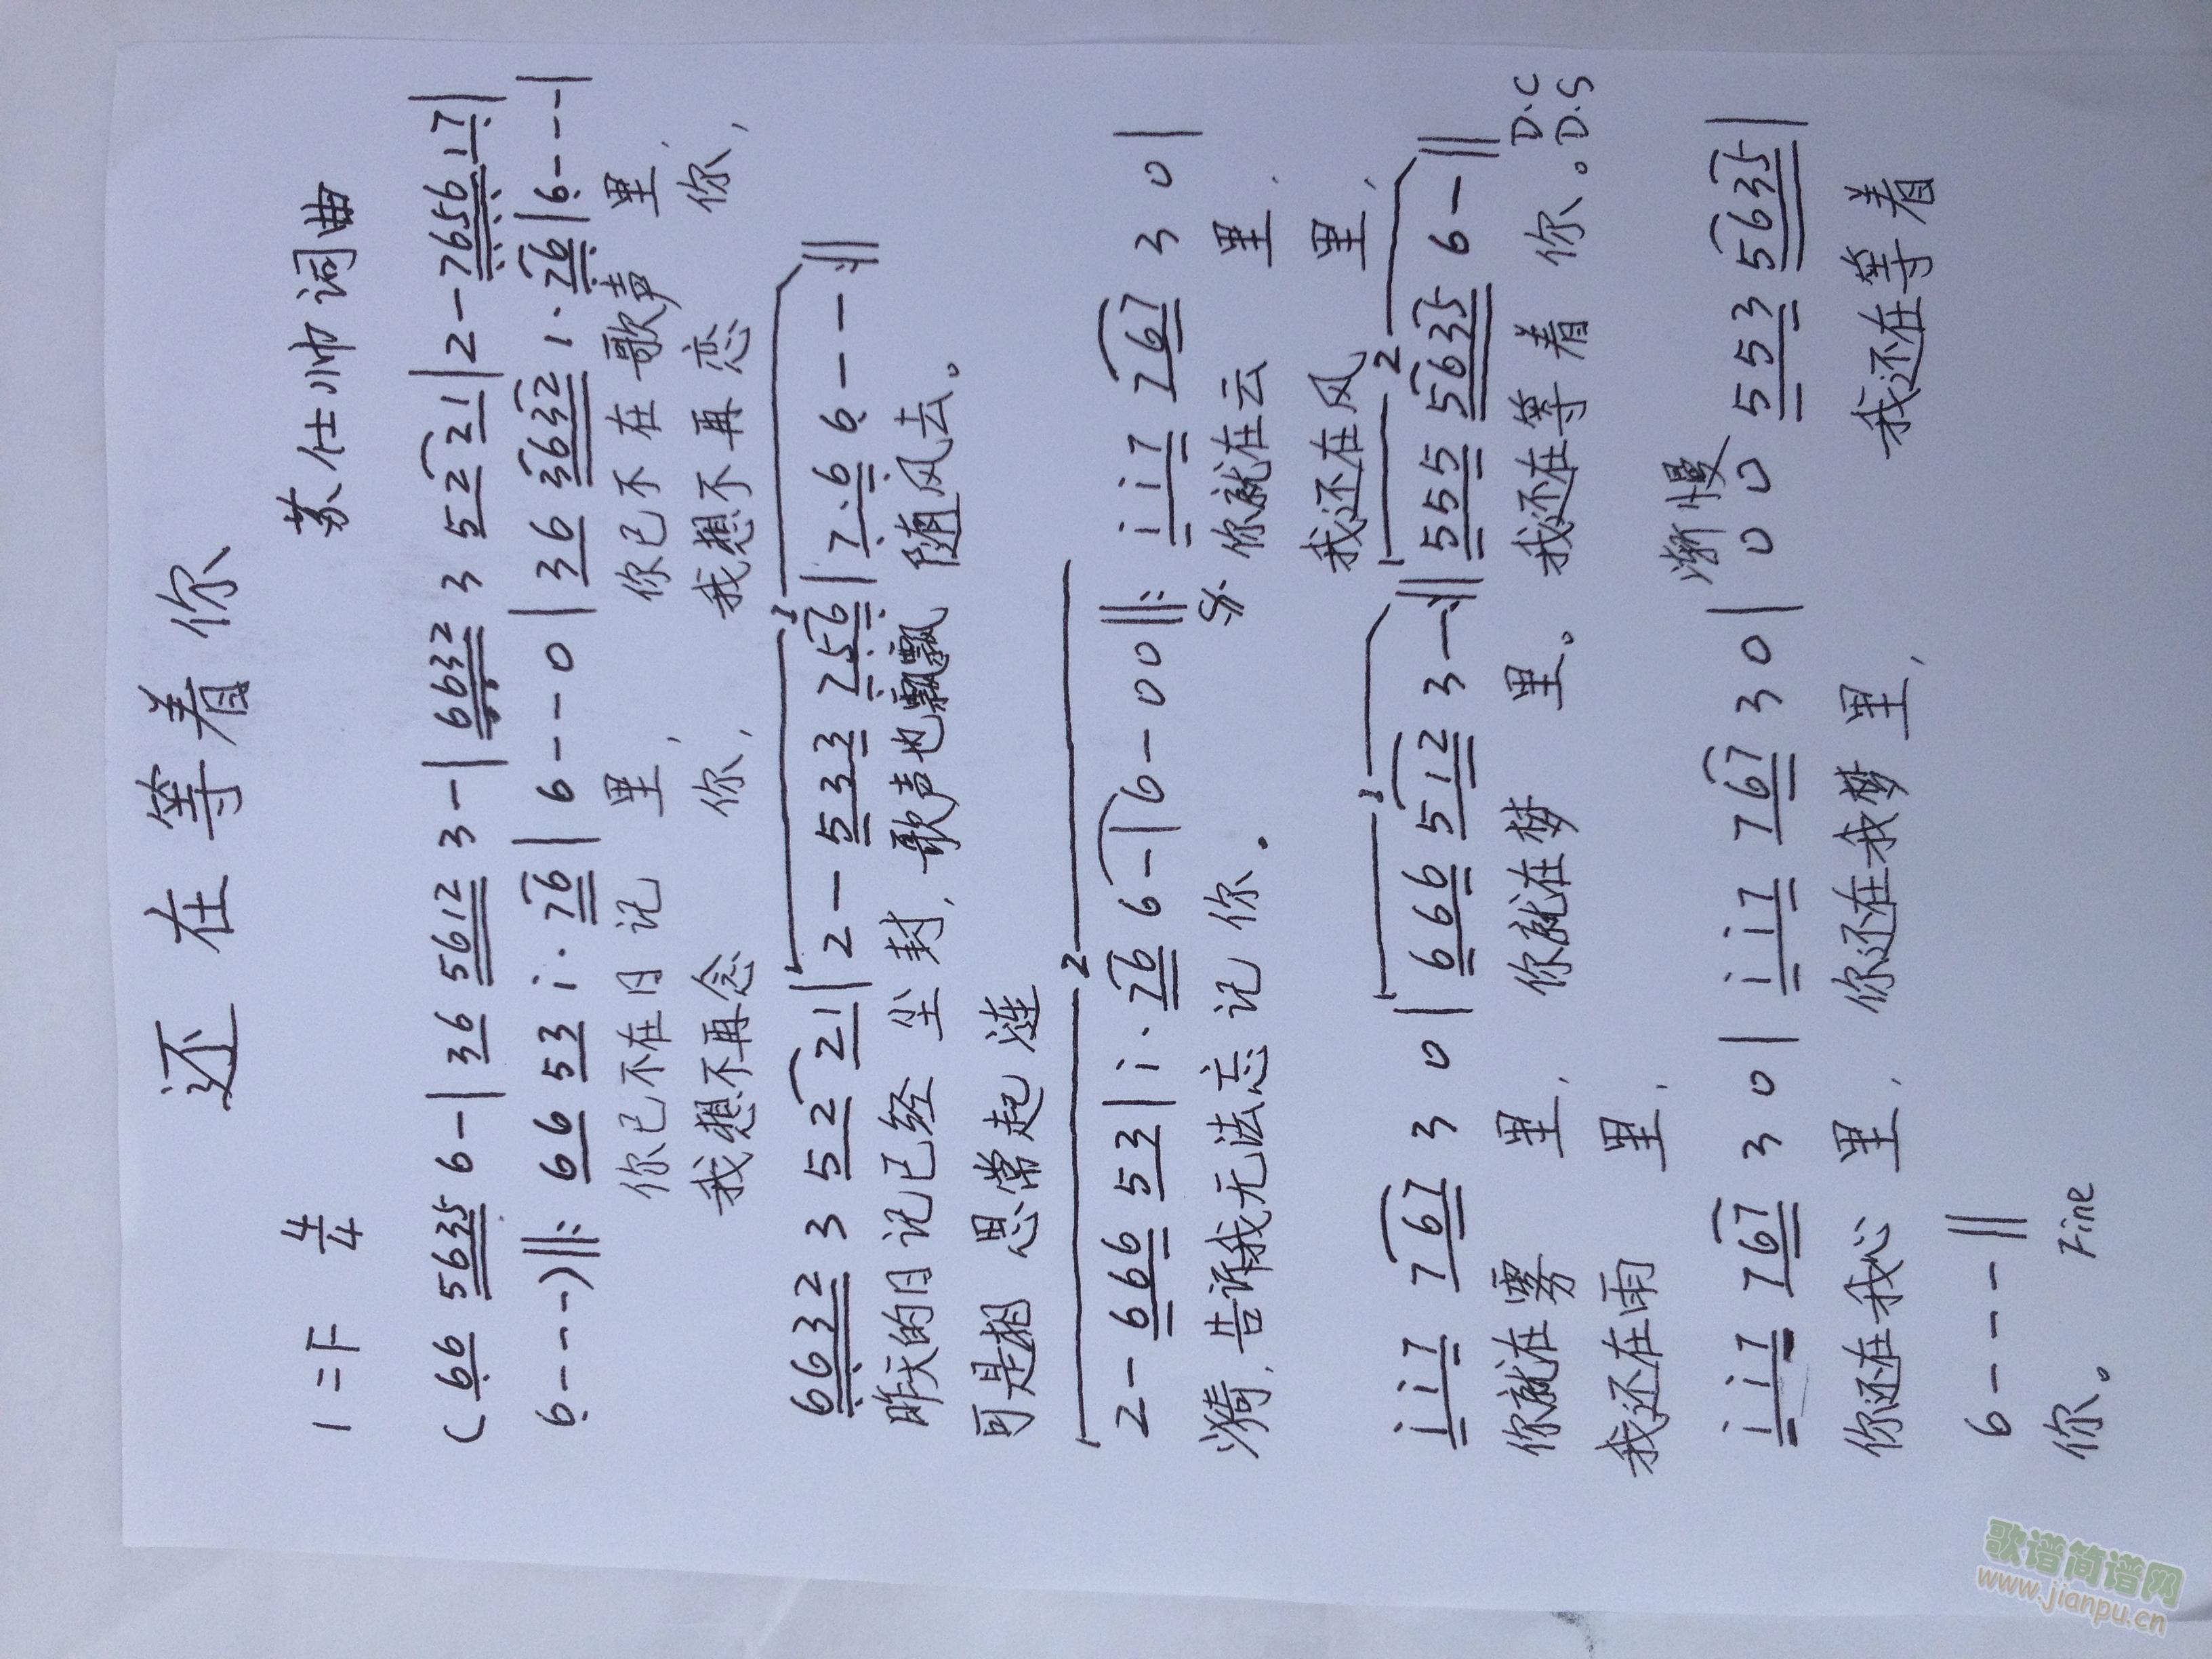 还在等着你
1=F 4/4 苏仕帅词曲
(66 5635 6-|36 5612 3-|6632 3 52 21|2-7656 17|
6---)‖: 66 53 i·76|6--0|36 3632 1·76|6---|
你已不在日记里, 你已不在歌声里,
我想不再念你, 我想不再恋你,
6632 3 52 21|2-533 256|7·6 6--:‖
昨天的日记已经尘封,歌声也飘飘随风去。
可是相思常起涟
2-666 53|i·76 6-|6-00‖: ii7 767 3 0|
漪,告诉我无法忘记你。 你就在云里,
我还在风里,
ii7 767 3 0|666 512 3-:‖555 5635 6-‖
你就在雾里, 你就在梦里。 我还在等着你。 D.C
我还在雨里, D.S
渐慢
ii7 767 3 0|ii7 767 3 0|0 0 553 5635|
你还在我心里, 你还在我梦里, 我还在等着
6---‖
你。 Fine
歌谱简谱网
www.jianpu.cn